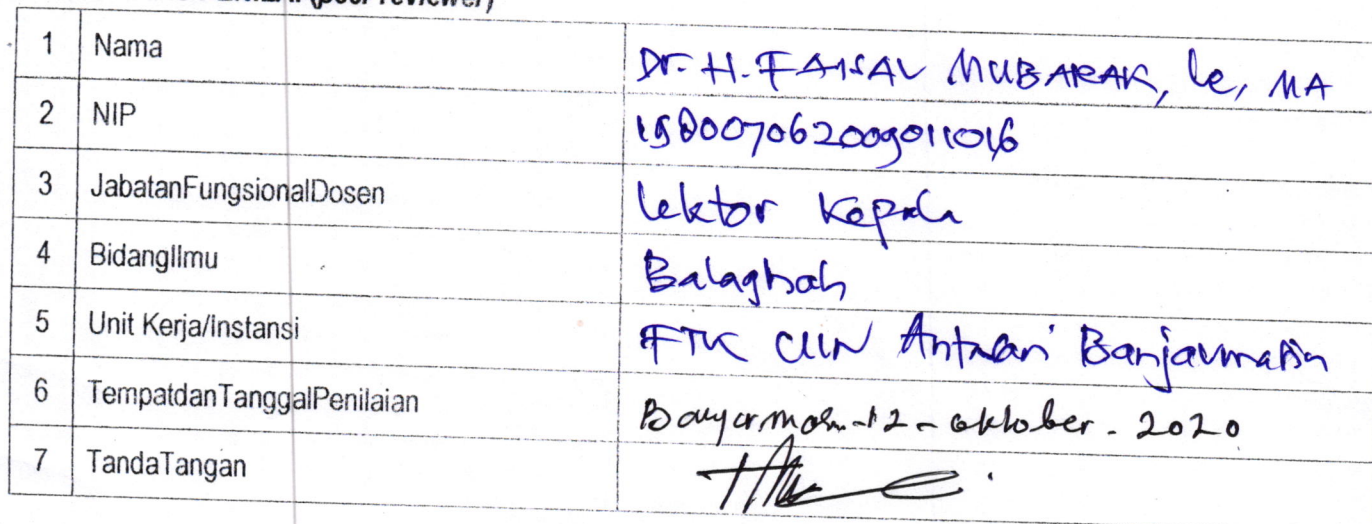 (peer reviewer)
1 Nama Dr. H. FAISAL MUBARAK, Lc, MA
2 NIP 198007062009011016
3 JabatanFungsionalDosen Lektor Kepala
4 BidangIlmu Balaghah
5 Unit Kerja/Instansi FTK UIN Antasari Banjarmasin
6 TempatdanTanggalPenilaian 12 - oktober - 2020
7 TandaTangan